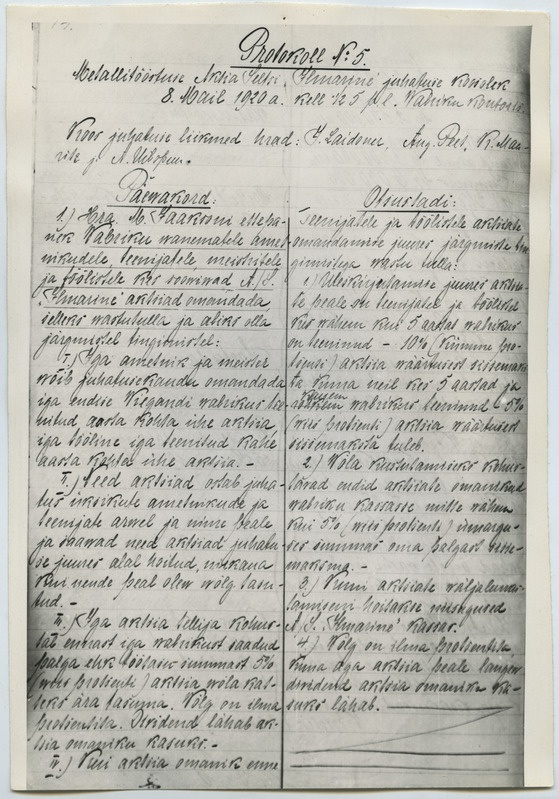 Protokoll № 5.
Metallitööstuse Aktsia Seltsi, "Ilmarine" juhatuse koosolek
8. Mail 1920 a. kell ½ 5 p. l. Wabriku kontoris
Koos juhatuse liikmed hrad: J. Laidoner, Aug. Peet, K. Maa-
Päewakord:
1.) Hra. M. Jaaksoni ettepa-
nek Wabriku wanematele amet-
nikudele, teenijatele meistritele
ja töölistele kes soowiwad A./S.
"Ilmarine" aktsiad omandada
selleks wastutulla ja abiks olla
järgmistel tingimistel:
I.) Iga ametnik ja meister
wõib juhatusekaudu omandada
iga endise Wiegandi wabrikus tee-
nitud aasta kohta ühe aktsia,
iga tööline iga teenitud kahe
aasta kohta ühe aktsia. –
II.) Need aktsiad ostab juha-
tus üksikute ametnikude ja
teenijate arwel ja nime peale
ja saawad need aktsiad juhatu-
se juures alal hoitud, niikaua
kui nende peal olew wõlg tasu-
tud. –
III.) Iga aktsia tellija kohus-
tab ennast iga wabrikust saadud
palga ehk töötasu summast 5%
(wiis protsenti) aktsia wõla kat-
teks ära tasuma. Wõlg on ilma
protsentita. Dividend läheb ak-
tsia omaniku kasuks. –
IV.) Kui aktsia omanik enne
Otsustadi:
Teenijatele ja töölistele aktsiate
omandamise juures järgmiste tin-
gimistega wastu tulla:
1) Üleskirjutamise juures aktsia-
te peale on teenijatel ja töölistel
kes wähem kui 5 aastat wabrikus
on teeninud – 10% (kümme pro-
tsenti) aktsia wäärtusest sissemaks-
ta kuna neil kes 5 aastad ja
rohkem wabrikus teeninud – 5%
(wiis protsenti) aktsia wäärtusest
sissemaksta tuleb.
2.) Wõla kustutamiseks kohus-
tawad endid aktsiate omanikud
wabriku kassasse mitte wähem
kui 5% (wiis protsenti) ümargu-
ses summas oma palgast sisse-
maksma. –
3.) Kuni aktsiate wäljalunas-
tamiseni hoitakse niisugused
A. S. "Ilmarine" kassas.
4.) Wõlg on ilma protsentita
kuna aga aktsia peale langew
dividend aktsia omaniku ka-
suks läheb.